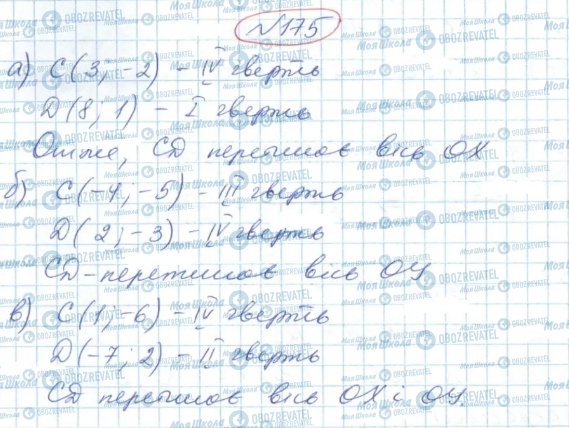 №175
а) C(3; -2) - IV чверть
D(8; 1) - I чверть
Отже, CD перетинає вісь OX
б) C(-4; -5) - III чверть
D(2; -3) - IV чверть
CD - перетинає вісь OY
в) C(1; -6) - IV чверть
D(-7; 2) - II чверть
CD перетинає вісь OX і OY.